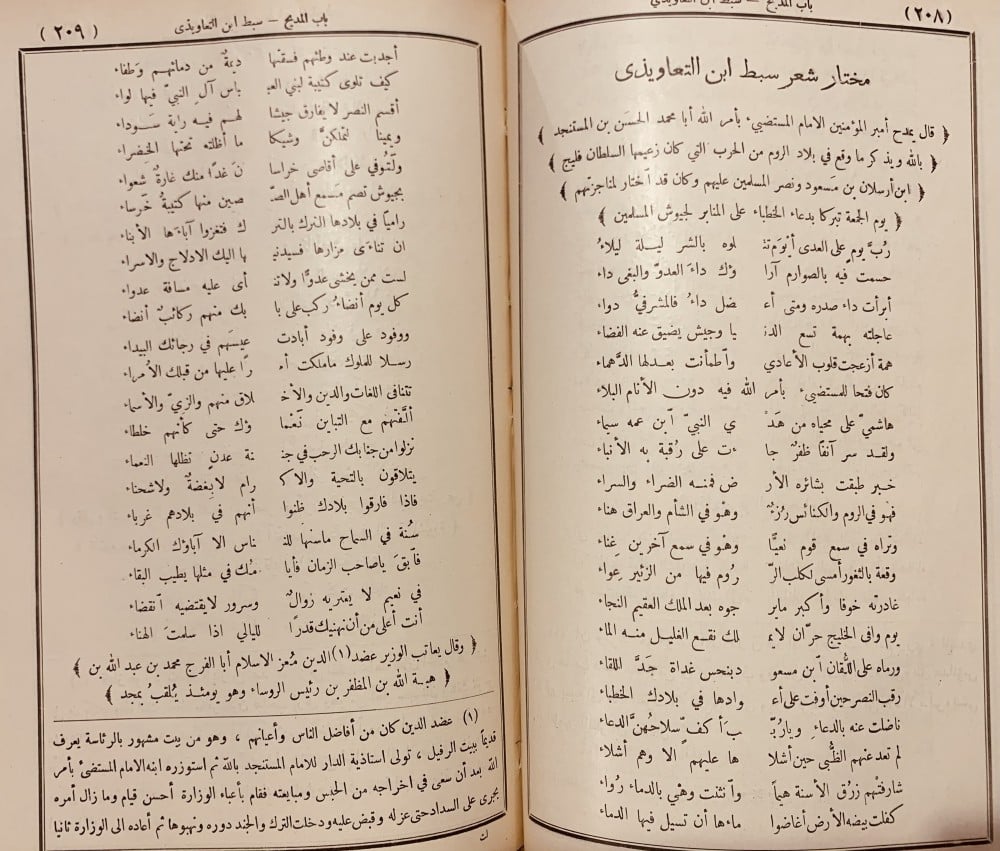 (٢٠٨)
باب المديح — سبط ابن التعاويذي
مختار شعر سبط ابن التعاويذى
﴿ قال يمدح أمير المؤمنين الامام المستضيء بأمر الله أبا محمد الحسَن بن المستنجد ﴾
﴿ بالله ويذكر ما وقع في بلاد الروم من الحرب التي كان زعيمها السلطان قليج ﴾
﴿ ابن أرسلان بن مَسعود ونصر المسلمين عليهم وكان قد اَختار لمناجزتهم ﴾
﴿ يوم الجمعة تبركا بدعاء الخطباء على المنابر لجيوش المسلمين ﴾
رُبَّ يوم على العدى أيْوَم تتـ لوه بالشر ليلة ليلاءُ
حسمت فيه بالصوارم آرا ؤك داءَ العدوّ والبغى داء
أبرأت داء صدره ومتى أعـ ضل داءُ فالمشرفيُّ دواء
عاجلته بهمة تسع الدنـ يا وجيش يضيق عنه الفضاء
همة أزعجت قلوب الأعادي واَطمأنت بعدلها الدَّهماء
كان فتحا للمستضيء بأمر الله فيه دون الأنام البلاء
هاشميّ على محياه من هَدْ ي النبيّ اَبن عمه سيماء
ولقد سر آنفاً ظفرٌ جا ءت على رُقبة به الأنباء
خبر طبقت بشائره الأر ض فمنه الضراء والسراء
فهو في الروم والكنائس رُزءٌ وهْو في الشأم والعراق هناء
وتراه في سمع قوم نعيًّا وهْو في سمع آخرين غِناء
وقعة بالثغور أمسى لكلب الرّ رُوم فيها من الزئير عِواء
غادرته خوفا وأكبر مايرـ جوه بعد الملك العقيم النجاء
يوم وافى الخليج حرّان لايمـ لك نقع الغليل منه الماء
ورماه على اللُّقان اَبن مسعو دبنحس غداة جَدَّ اللقاء
رقب النصر حين أوفت على أعـ وادها في بلادك الخطباء
ناضلت عنه بالدعاء ويارُبّـ ـبَ أكفّ سلاحُهنَّ الدعاء
لم تعد عنهم الظُّبى حين أشلا ها عليهم الا وهم أشلاء
شارفتْهم زرْق الأسنة هيماً واَنثنت وهْي بالدماء رُواء
كفلت بيضه الأرض أغاضوا ماءها أن تسيل فيها الدماء
باب المديح — سبط ابن التعاويذى
( ٢٠٩ )
أجدبت عند وطئهم فسقتها ديمةٌ من دمائهـم وَطفاء
كيف تلوى كتيبة لبني العبـ باس آل النبيّ فيها لواء
أقسم النصر لايفارق جيشا لهـم فيه راية سَـوداء
ويمينا لتملكنَّ وشيكا ما أظلته تحتها الخَضراء
ولَتُوفي على أقاصى خراسا نَ غدّا منك غارةٌ شعواء
بجيوش تصم مسمع أهل الصّـ صين منها كتيبةُ خَرساء
راميا في بلادها الترك بالتر ك فتغزوا آباءَها الأبناء
ان تناءى مزارها فسيدنيـ ها اليك الادلاج والاسراء
لست ممن يخشى عدوّا ولاتنـ أى عليه مسافة عدواء
كل يوم أنضاءُ ركب على با بك منهم ركائبٌ أنضاء
ووفود على وفود أبادت عيسَهم في رجائك البيداء
رسلا للملوك ماملكت أمـ رًا عليها من قبلك الأمراء
تتنافى اللغات والدين والأخـ لاق منهم والزيّ والأسماء
ألَّفتْهم مع التباين نَعْما ؤك حتى كأنهم خلطاء
نزلوا من جنابك الرحب في جنـ نة عدنٍ تظلها النعماء
يتلاقون بالتحية والاكـ رام لابغضةٌ ولاشحناء
فاذا فارقوا بلادك ظنوا أنهم في بلادهم غرباء
سُنة في السماح ماسنها للنـ ناس الا آباؤك الكرماء
فابقَ ياصاحب الزمان فأيا مُك في مثلها يطيب البقاء
في نعيم لا يعتريه زوالٌ وسرور لايقتضيه اَنقضاء
أنت أعلى من أن نهنيك قدرًا لليالي اذا سلمتَ الهناء
﴿ وقال يعاتب الوزير عضد(١)الدين مُعز الاسلام أبا الفرج محمد بن عبد الله بن ﴾
﴿ هبة الله بن المظفر بن رئيس الروساء وهو يومئذ يُلقبُ بمجد ﴾
(١) عضد الدين كان من أفاضل الناس وأعيانهم ، وهو من بيت مشهور بالرئاسة يعرف
قديماً ببيت الرفيل ، تولى استاذية الدار للامام المستنجد بالله ثم استوزره ابنه الامام المستضئ بأمر
الله بعد أن سعى في اخراجه من الحبس ومبايعته فقام بأعباء الوزارة أحسن قيام وما زال أمره
يجرى على السداد حتى عزله وقبض عليه ودخلت الترك والجند دوره ونهبوها ثم أعاده الى الوزارة ثانيا
ك